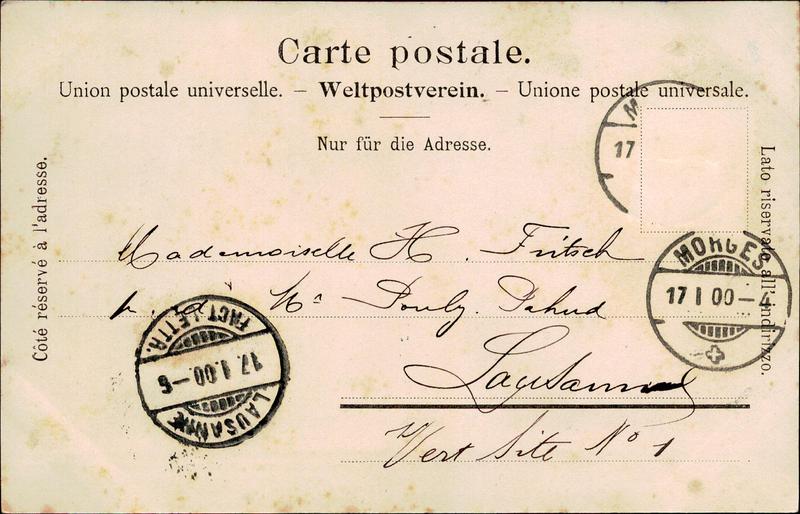 Carte postale.
Union postale universelle. – Weltpostverein. – Unione postale universale.
Nur für die Adresse.
Côté réservé à l'adresse.
Lato riservato all'indirizzo.
17
MORGES
17 I 00–4
Mademoiselle H. Fritsch
Lausanne
Vert Site No 1
FACT. LETTR.
17.1.00–6
LAUSANNE